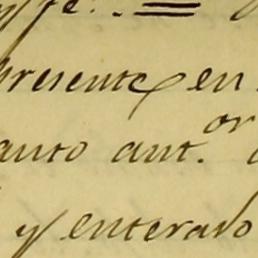 presente en
anto ant.or
y enterado